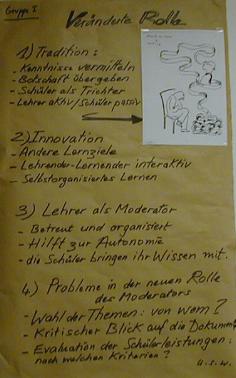 Gruppe I
Veränderte Rolle
1) Tradition:
- Kenntnisse vermitteln
- Botschaft übergeben
- Schüler als Trichter
- Lehrer aktiv/Schüler passiv
2) Innovation
- Andere Lernziele
- Lehrender-Lernender interaktiv
- Selbstorganisiertes Lernen
3) Lehrer als Moderator
- Betreut und organisiert
- Hilft zur Autonomie
- die Schüler bringen ihr Wissen mit.
4) Probleme in der neuen Rolle
des Moderators
- Wahl der Themen: von wem?
- Kritischer Blick auf die Dokumm
- Evaluation der Schülerleistungen:
nach welchen Kriterien?
u.s.w.